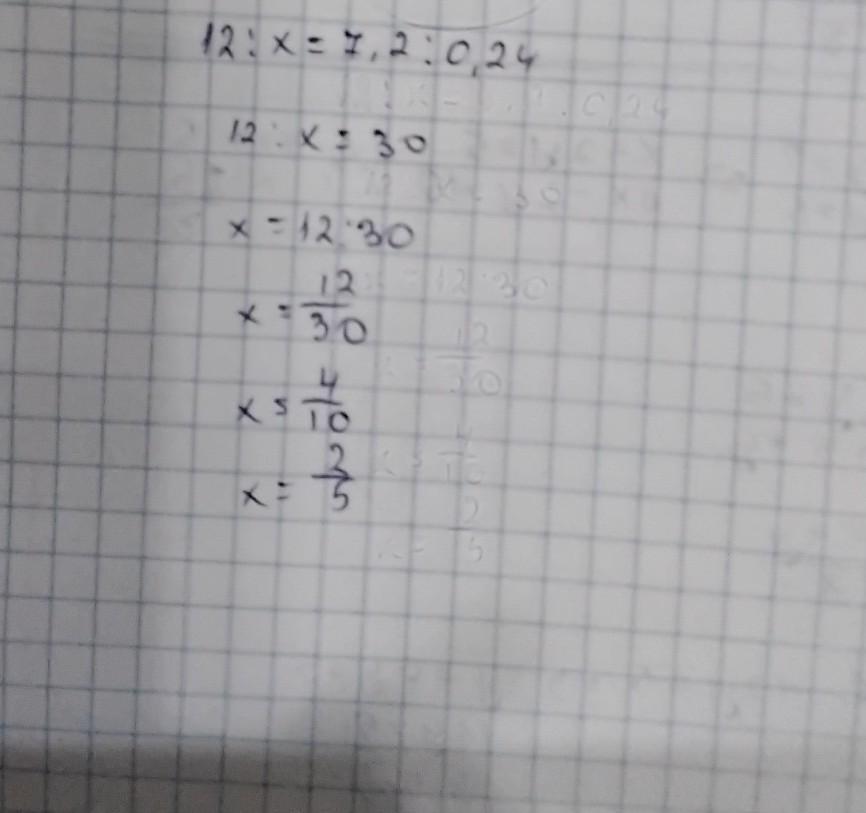 12 : x = 7,2 : 0,24
12 : x = 30
x = 12 : 30
x = 12/30
x = 4/10
x = 2/5